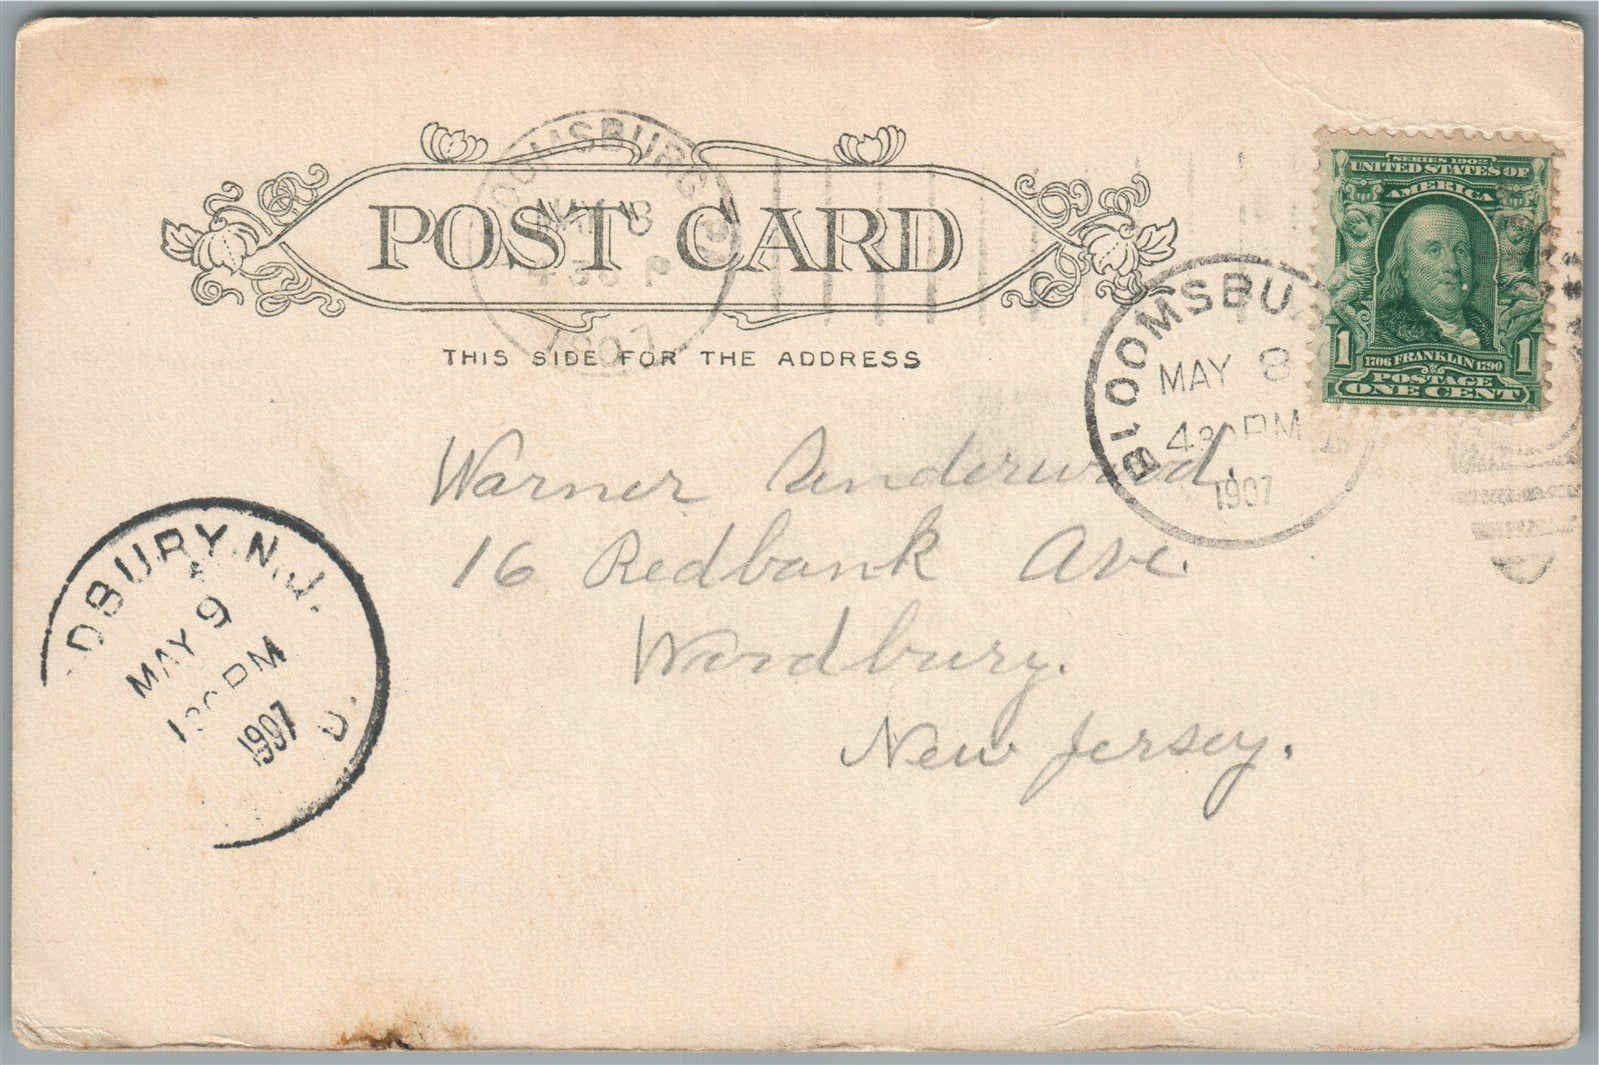 POST CARD
THIS SIDE FOR THE ADDRESS
OOMSBURG
MAY 8
430 P
1907
BLOOMSBU
MAY 8
430PM
1907
SERIES 1902
UNITED STATES OF
AMERICA
1 1706 FRANKLIN 1790 1
POSTAGE
ONE CENT
Warner Underwood.
16 Redbank Ave.
Woodbury.
New Jersey.
ODBURY, N.J.
MAY 9
PM
1907